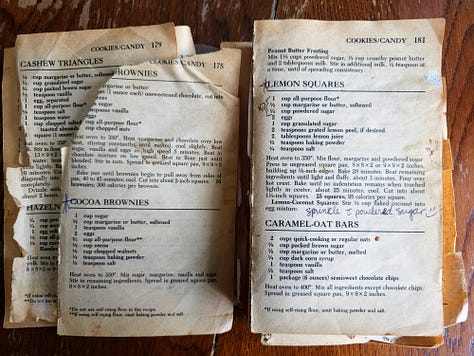 COOKIES/CANDY 179
CASHEW TRIANGLES
cup margarine or butter, softened
cup granulated sugar
cup packed brown sugar
teaspoon vanilla
egg, separated
cup all-purpose flour*
teaspoon salt
cup chopped salted
toasted
square (1 ounce)
HAZELN
COOKIES/CANDY 175
BROWNIES
cup margarine or butter
(1 ounce each) unsweetened chocolate, cut into
cups sugar
teaspoons vanilla
eggs
cup all-purpose flour*
teaspoon salt
cup chopped nuts
Heat oven to 350°. Heat margarine and chocolate over low
heat, stirring constantly, until melted; cool slightly. Beat
sugar, vanilla and eggs on high speed 5 minutes. Beat in
chocolate mixture on low speed. Beat in flour just until
blended. Stir in nuts. Spread in greased square pan, 9×9×2
inches.
Bake just until brownies begin to pull away from sides of
pan, 40 to 45 minutes; cool. Cut into about 2-inch squares. 16
brownies; 300 calories per brownie.
COCOA BROWNIES
cup sugar
cup margarine or butter, softened
teaspoon vanilla
eggs
cup all-purpose flour**
cup cocoa
cup chopped walnuts
teaspoon baking powder
teaspoon salt
Heat oven to 350°. Mix sugar, margarine, vanilla and eggs.
Stir in remaining ingredients. Spread in greased square pan,
8×8×2 inches.
*Do not use self-rising flour in this recipe.
**If using self-rising flour, omit baking powder and salt.
COOKIES/CANDY 181
Peanut Butter Frosting
Mix 1½ cups powdered sugar, ¼ cup crunchy peanut butter
and 2 tablespoons milk. Stir in additional milk, ½ teaspoon at
a time, until of spreading consistency.
LEMON SQUARES
1 cup all-purpose flour*
½ cup margarine or butter, softened
¼ cup powdered sugar
2 eggs
1 cup granulated sugar
2 teaspoons grated lemon peel, if desired
2 tablespoons lemon juice
½ teaspoon baking powder
¼ teaspoon salt
Heat oven to 350°. Mix flour, margarine and powdered sugar.
Press in ungreased square pan, 8×8×2 or 9×9×2 inches,
building up ½-inch edges. Bake 20 minutes. Beat remaining
ingredients until light and fluffy, about 3 minutes. Pour over
hot crust. Bake until no indentation remains when touched
lightly in center, about 25 minutes; cool. Cut into about
1½-inch squares. 25 squares; 95 calories per square.
Lemon-Coconut Squares: Stir ½ cup flaked coconut into
egg mixture. Sprinkle c powdered sugar
CARAMEL-OAT BARS
2 cups quick-cooking or regular oats
1 cup packed brown sugar
½ cup margarine or butter, melted
¼ cup dark corn syrup
1 teaspoon vanilla
½ teaspoon salt
1 package (6 ounces) semisweet chocolate chips
Heat oven to 400°. Mix all ingredients except chocolate chips.
Spread in greased square pan, 9×9×2 inches.
*If using self-rising flour, omit baking powder and salt.